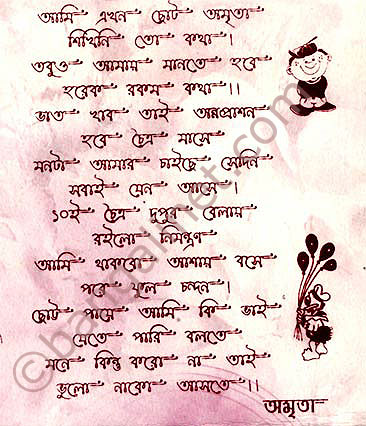 আমি এখন ছোট অমৃতা
শিখিনি তো কথা।
তবুও আমায় মানতে হবে
হরেক রকম কথা।।
ভাত খাব তাই অন্নপ্রাশন
হবে চৈত্র মাসে
মনটা আমার চাইছে সেদিন
সবাই যেন আসে।
১০ই চৈত্র দুপুর বেলায়
রইলো নিমন্ত্রণ
আমি থাকবো আশায় বসে
পরে ফুল চন্দন।
ছোট পায়ে আমি কি ভাই
যেতে পারি বলতে
মনে কিন্তু করো না তাই
ভুলো নাকো আসতে।।
অমৃতা